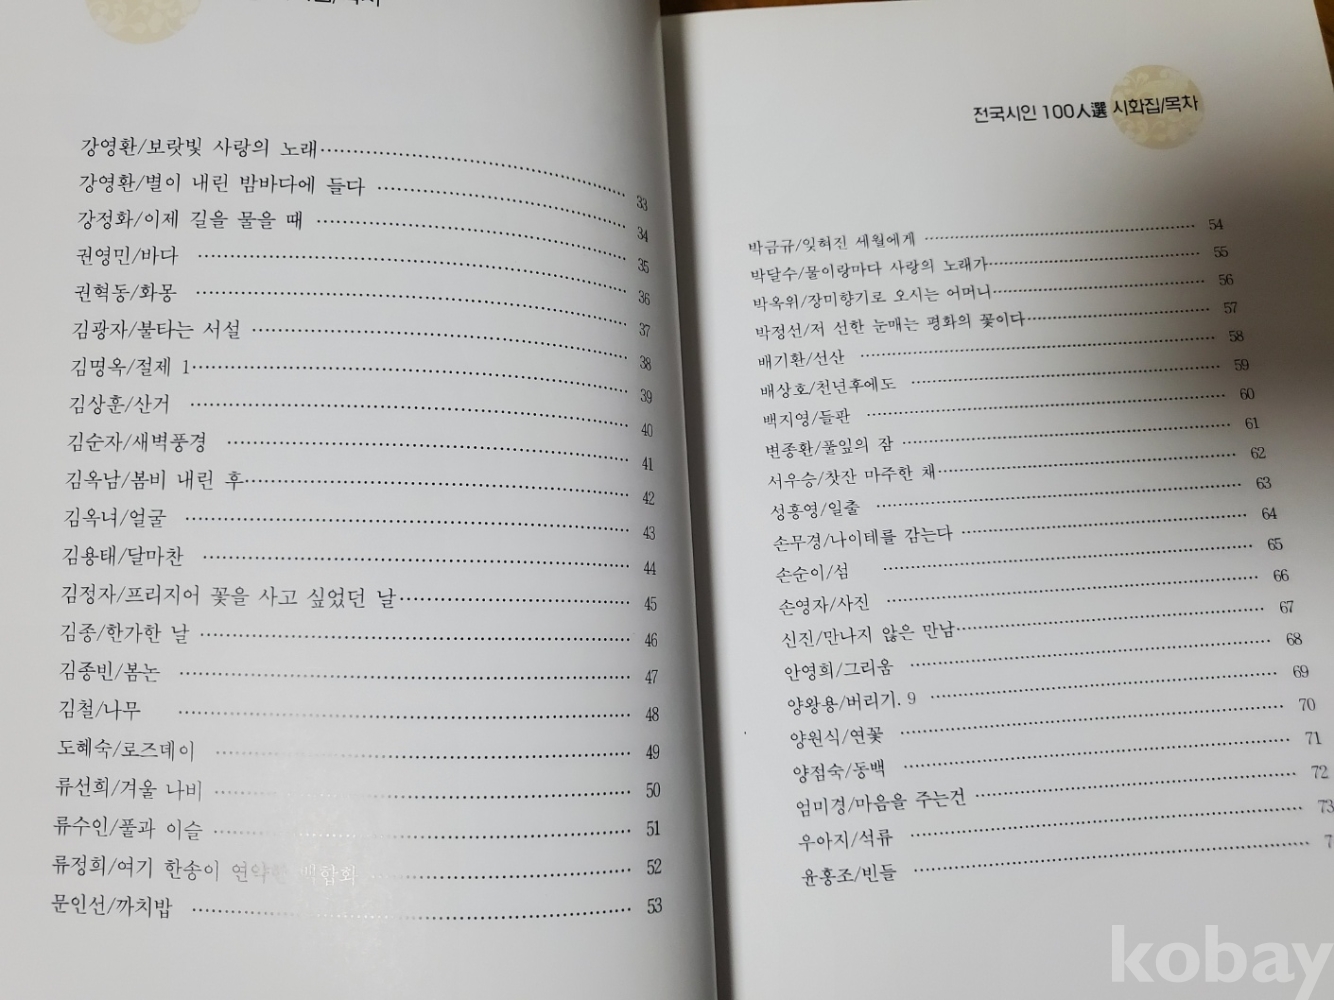 강영환/보랏빛 사랑의 노래 33
강영환/별이 내린 밤바다에 들다 34
강정화/이제 길을 물을 때 35
권영민/바다 36
권혁동/화몽 37
김광자/불타는 서설 38
김명옥/절제 1 39
김상훈/산거 40
김순자/새벽풍경 41
김옥남/봄비 내린 후 42
김옥녀/얼굴 43
김용태/달마찬 44
김정자/프리지어 꽃을 사고 싶었던 날 45
김종/한가한 날 46
김종빈/봄논 47
김철/나무 48
도혜숙/로즈데이 49
류선희/겨울 나비 50
류수인/풀과 이슬 51
류정희/여기 한송이 연약한 백합화 52
문인선/까치밥 53
전국시인 100人選 시화집/목차
박금규/잊혀진 세월에게 54
박달수/물이랑마다 사랑의 노래가 55
박옥위/장미향기로 오시는 어머니 56
박정선/저 선한 눈매는 평화의 꽃이다 57
배기환/선산 58
배상호/천년후에도 59
백지영/들판 60
변종환/풀잎의 잠 61
서우승/찻잔 마주한 채 62
성흥영/일출 63
손무경/나이테를 감는다 64
손순이/섬 65
손영자/사진 66
신진/만나지 않은 만남 67
안영희/그리움 68
양왕용/버리기. 9 69
양원식/연꽃 70
양점숙/동백 71
엄미경/마음을 주는건 72
우아지/석류 73
윤홍조/빈들 7
kobay